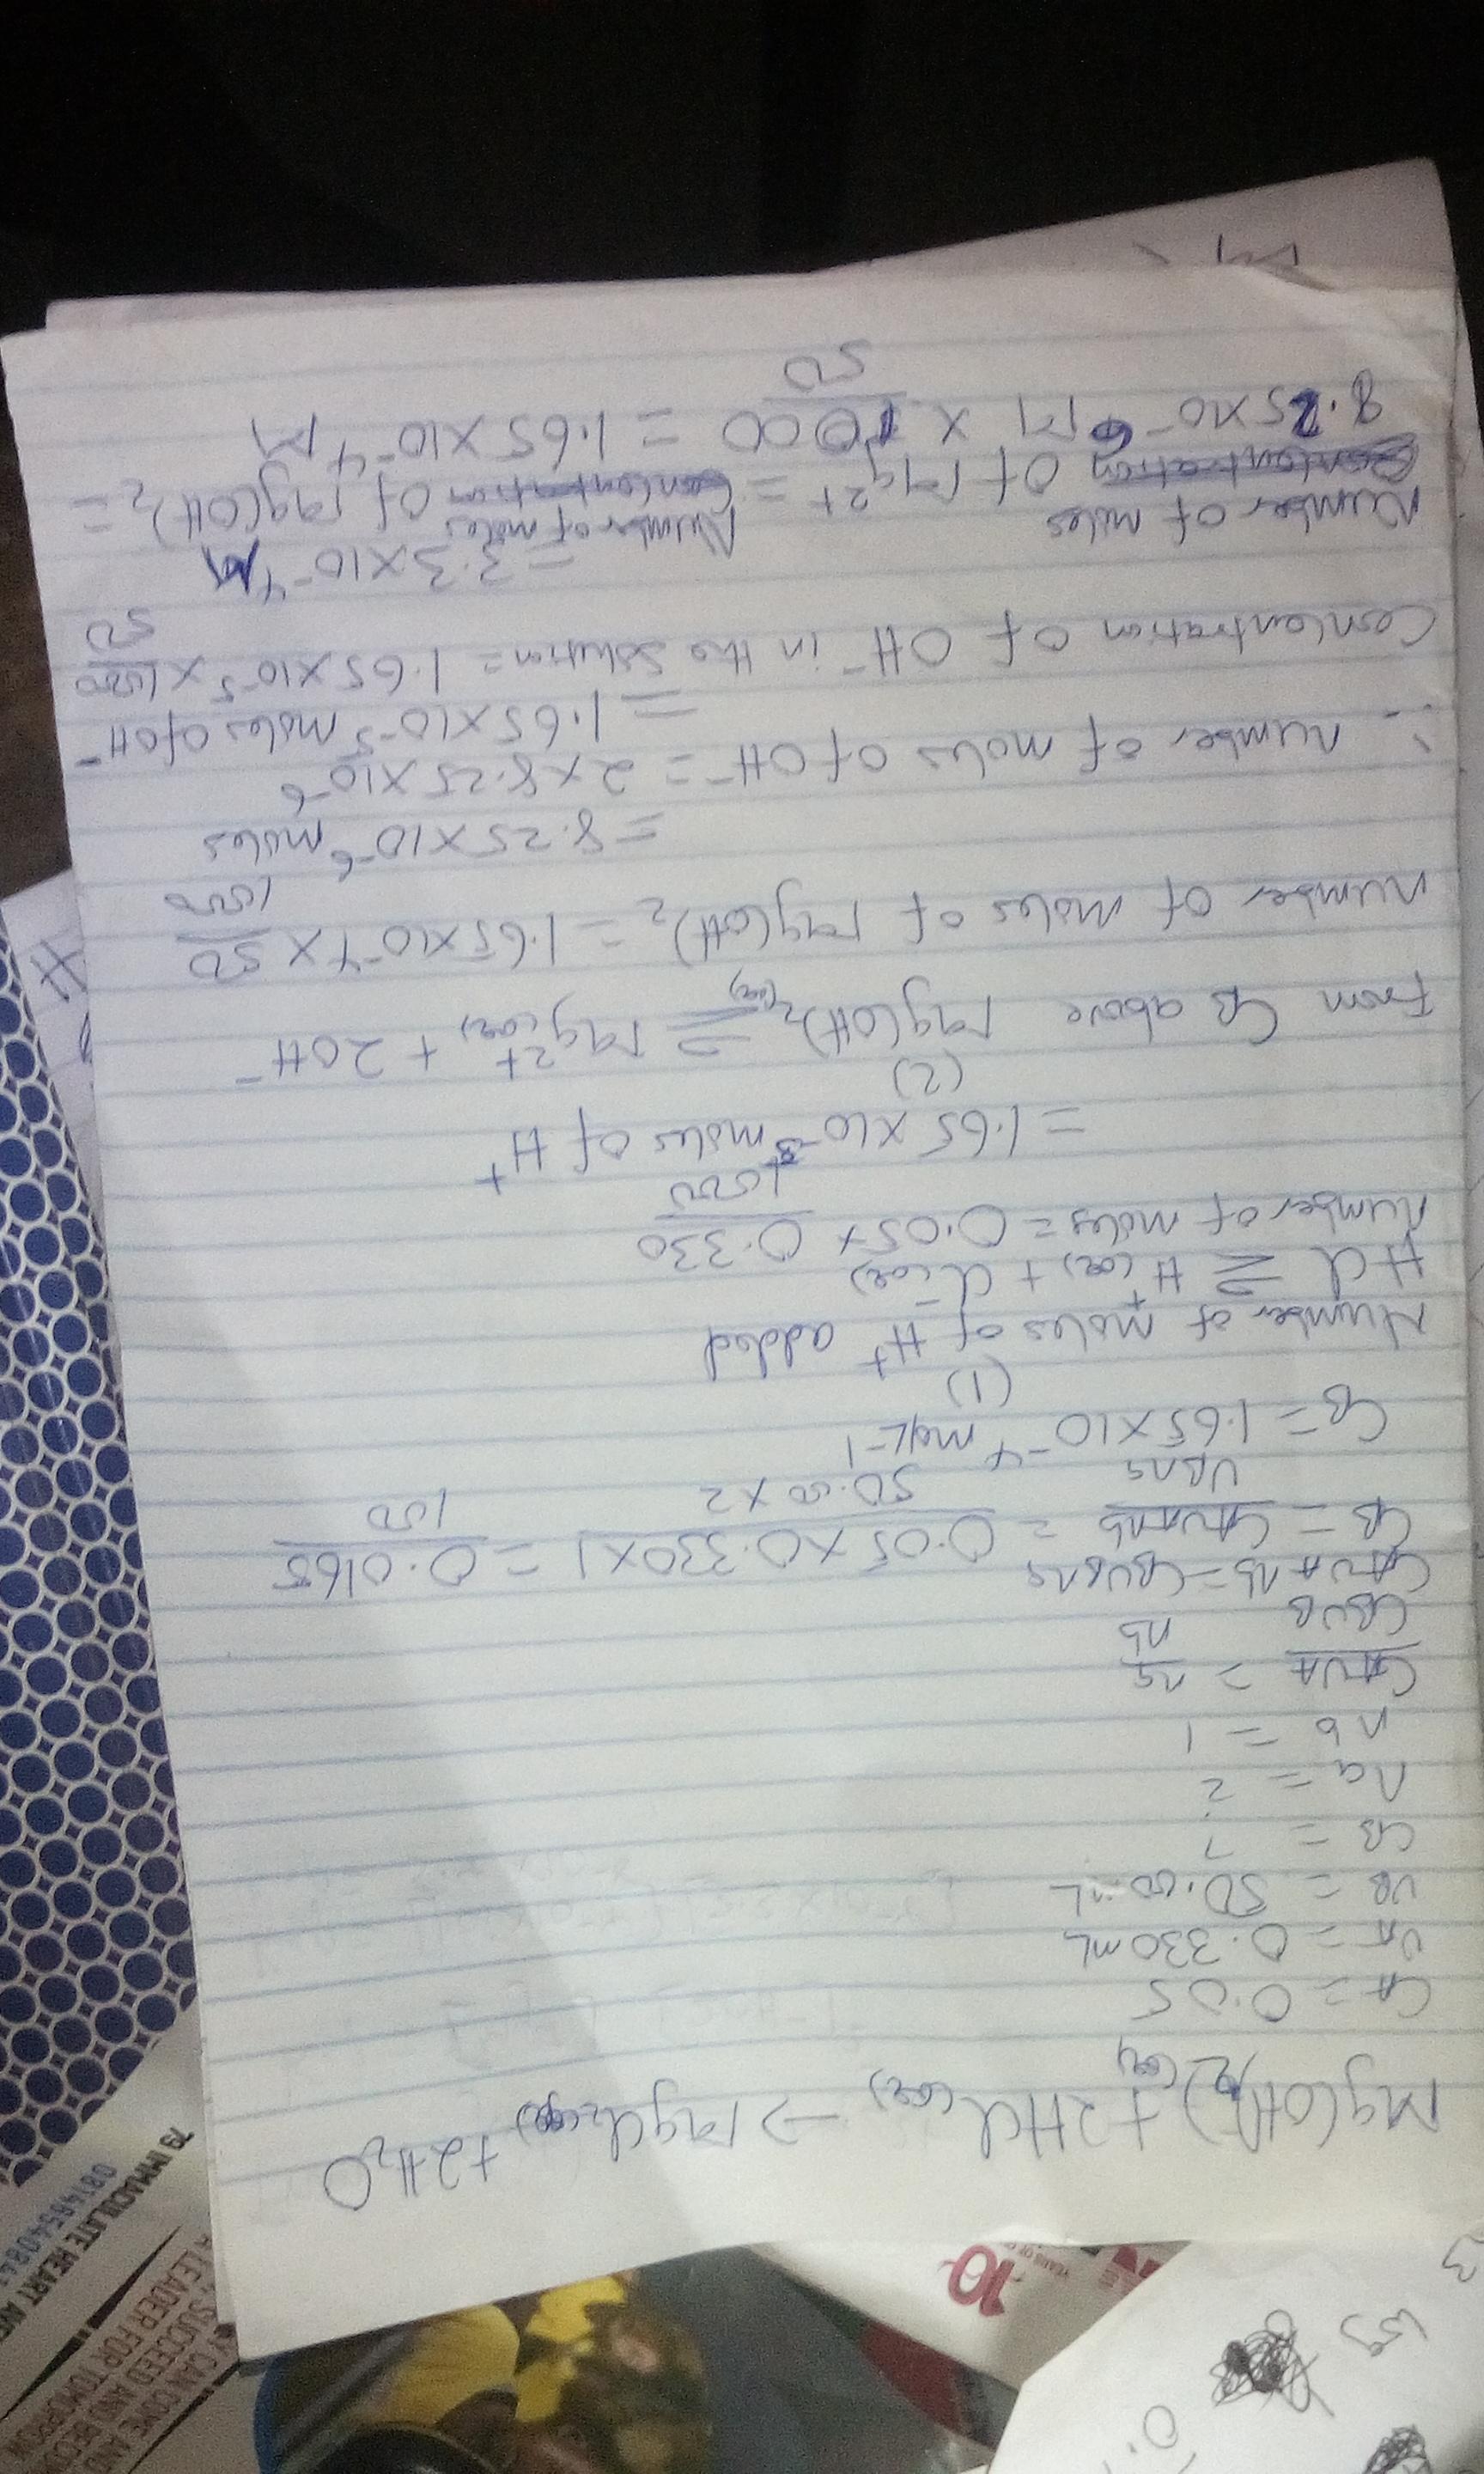 Mg(OH)2(aq) + 2HCl(aq) → MgCl2(aq) + 2H2O
CA = 0.05
VA = 0.330mL
VB = 50.00mL
CB = ?
na = 2
nb = 1
CAVA/CBVB = na/nb
CAVAnb = CBVBna
CB = CAVAnb/VBna = 0.05 × 0.330 × 1/50.00 × 2 = 0.0165/100
CB = 1.65 × 10-4 mol/L-1
(1)
Number of moles of H+ added
HCl ⇌ H+(aq) + Cl-(aq)
Number of moles = 0.05 × 0.330/1000
= 1.65 × 10-5 moles of H+
(2)
From CB above Mg(OH)2(aq) ⇌ Mg2+(aq) + 2OH-
Number of moles of Mg(OH)2 = 1.65 × 10-4 × 50/1000
= 8.25 × 10-6 moles
∴ Number of moles of OH- = 2 × 8.25 × 10-6
= 1.65 × 10-5 moles of OH-
Concentration of OH- in the solution = 1.65 × 10-5 × 1000/50
= 3.3 × 10-4 M
Number of moles of Mg2+ = Number of moles of Mg(OH)2 =
8.25 × 10-6 M × 1000/50 = 1.65 × 10-4 M
79 IMMACULATE HEART
0814854084
A LEADER FOR TOMORROW
SUCCEED AND
CAN COME AND
10
YEARS OF